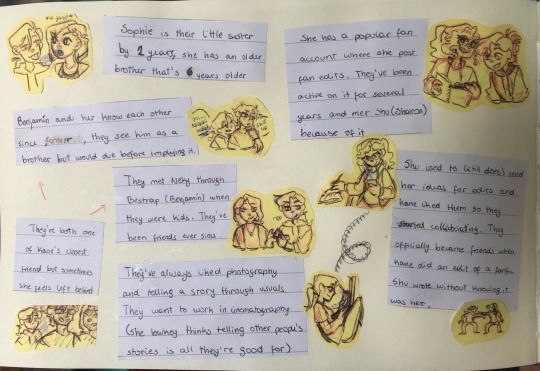 Sophie is their little sister
by 2 years, she has an older
brother that's 6 years older
She has a popular fan
account where she post
fan edits. They've been
active on it for several
years and met Shu (Sharon)
because of it
Benjamin and her know each other
since forever, they see him as a
brother but would die before implying it.
They met Neky through
Bestrap (Benjamin) when
they were kids. They've
been friends ever since.
She used to (still does) send
her ideas for edits and
Kane liked them so they
started collaborating. They
officially became friends when
Kane did an edit of a fanfic
Shu wrote without knowing it
was her.
They're both one
of Kane's closest
friend but sometimes
she feels left behind
They've always liked photography
and telling a story through visuals
They want to work in cinematography
(she lowkey thinks telling other people's
stories is all they're good for)